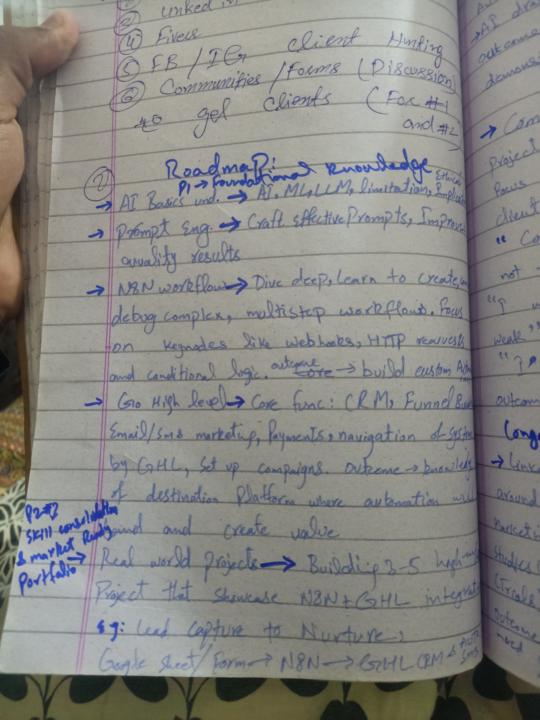 ③ linked in
④ Fiverr
⑤ FB/IG client Hunting
⑥ Communities/Forms (Discussion)
to get clients (For #1
and #2)
② Roadmap:
P1 → foundational knowledge
→ AI Basics und. → AI, ML, LLM, limitation, Ethical
→ Prompt Eng. → Craft effective Prompts, Improve
quality results
→ N8N workflow → Dive deep, learn to create,
debug complex, multistep workflows. Focus
on keynodes like webhooks, HTTP requests
and conditional logic. outcome → build custom
→ Go High level → Core func: CRM, Funnel
Email/sms marketing, Payments, navigation of system
by GHL, set up campaigns. outcome → knowledge
of destination Platform where automation will
and create value
P2 → skill consolidation
& market Ready
Portfolio
→ Real world projects → Building 3-5 high
Project that showcase N8N + GHL
eg: Lead capture to Nurture
Google sheet/Form → N8N → GHL CRM &
SMS
→ AI
outcome
→ Com
Project
Focus
client
" Co
not
weak"
outcome
Long
→ Link
around
Marketi
Studies
outcome